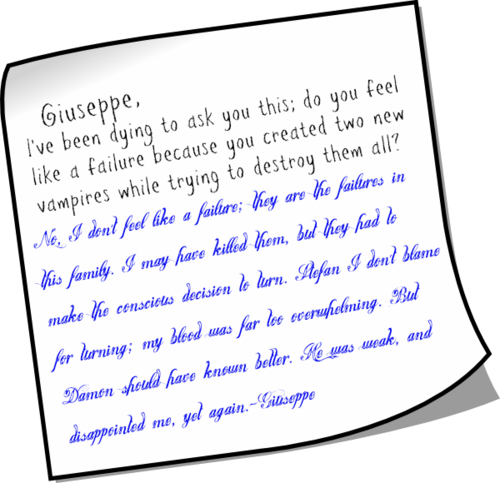 Giuseppe,
I've been dying to ask you this; do you feel
like a failure because you created two new
vampires while trying to destroy them all?
No, I dont feel like a failure; they are the failures in
this family. I may have killed them, but they had to
make the conscious decision to turn. Stefan I don't blame
for turning; my blood was far too overwhelming. But
Damon should have known better. He was weak, and
disappointed me, yet again.~Giuseppe